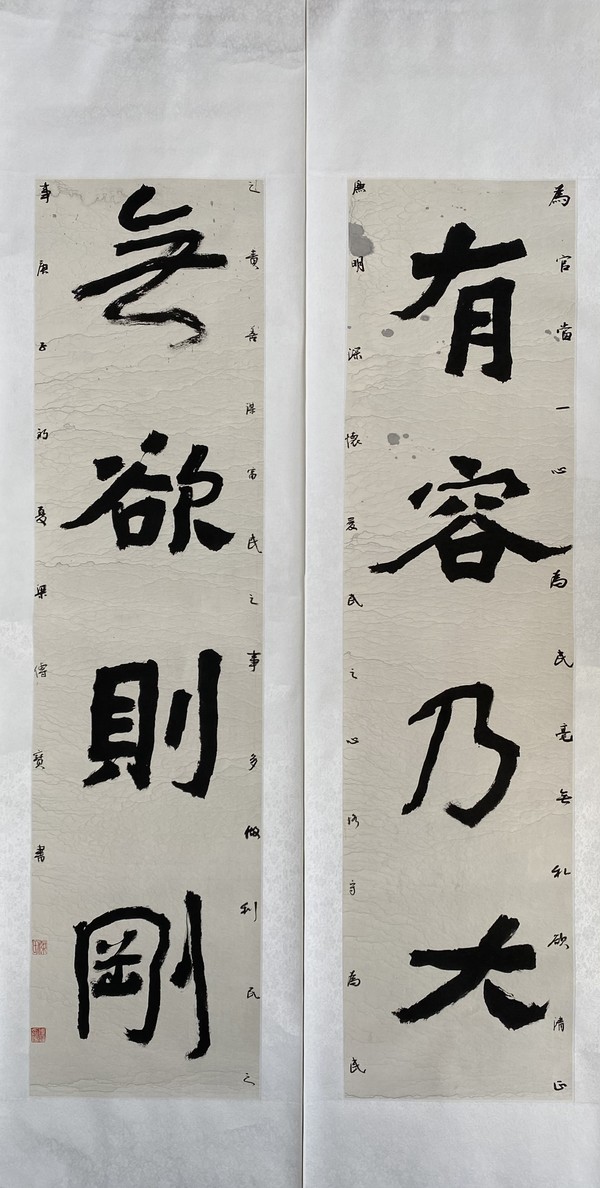 為官當一心為民毫無私欲清正
有容乃大
廉明深懷愛民之心恪守為民
之責善謀富民之事多做利民之
無欲則剛
事庚子初夏梁傳寶書